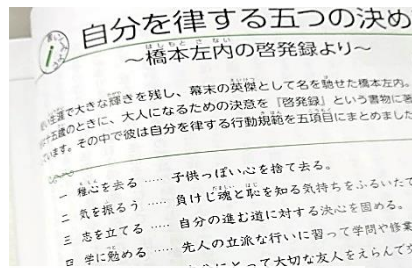 自分を律する五つの決め
～橋本左内の啓発録より～
生涯で大きな輝きを残し、幕末の英傑として名を馳せた橋本左内。
十五歳のときに、大人になるための決意を『啓発録』という書物に著
ています。その中で彼は自分を律する行動規範を五項目にまとめました
一 稚心を去る …… 子供っぽい心を捨て去る。
二 気を振るう …… 負けじ魂と恥を知る気持ちをふるいたて
三 志を立てる …… 自分の進む道に対する決心を固める。
四 学に勉める …… 先人の立派な行いに習って学問や修業
とって大切な友人をえらんで交